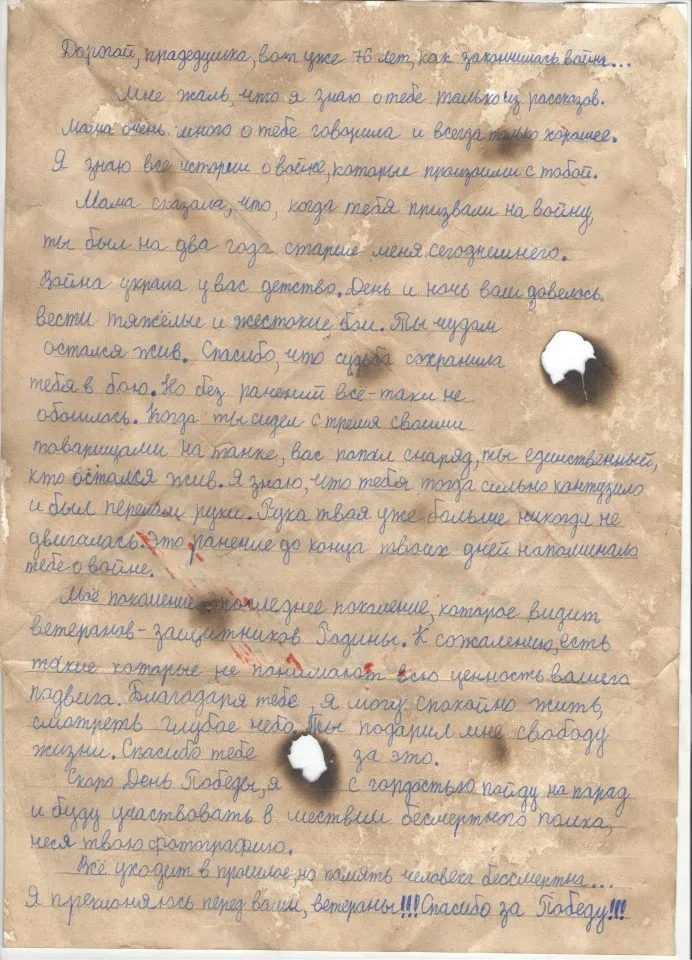 Дорогой, прадедушка, вот уже 76 лет, как закончилась война...
Мне жаль, что я знаю о тебе только из рассказов.
Мама очень много о тебе говорила и всегда только хорошее.
Я знаю все истории о войне, которые произошли с тобой.
Мама сказала, что, когда тебя призвали на войну,
ты был на два года старше меня сегодняшнего.
Война украла у вас детство. День и ночь вам довелось
вести тяжёлые и жестокие бои. Ты чудом
остался жив. Спасибо, что судьба сохранила
тебя в бою. Но без ранений всё-таки не
обошлось. Когда ты сидел с тремя своими
товарищами на танке, в вас попал снаряд, ты единственный,
кто остался жив. Я знаю, что тебя тогда сильно контузило
и был перелом руки. Рука твоя уже больше никогда не
двигалась. Это ранение до конца твоих дней напоминало
тебе о войне.
Моё поколение - последнее поколение, которое видит
ветеранов-защитников Родины. К сожалению, есть
такие которые не понимают всю ценность вашего
подвига. Благодаря тебе, я могу спокойно жить,
смотреть голубое небо. Ты подарил мне свободу
жизни. Спасибо тебе за это.
Скоро День Победы, я с гордостью пойду на парад
и буду участвовать в шествии бесмертного полка,
неся твою фотографию.
Всё уходит в прошлое, но память человека бессмертна...
Я преклоняюсь перед вами, ветераны!!! Спасибо за Победу!!!